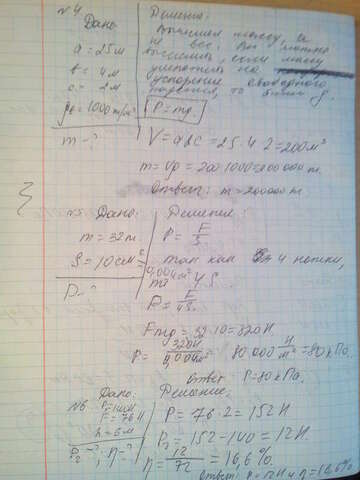 №4
Дано
a = 25м
b = 4м
c = 2м
ρв = 1000 кг/м³
m - ?
Решение:
Вычислим массу, а
не вес. Вес можно
вычислить, если массу
умножить на
ускорение свободного
падения, то есть g.
P = mg.
V = abc = 25·4·2 = 200м³
m = Vρ = 200·1000 = 200 000
Ответ: m = 200000
№5
Дано:
m = 32т.
S = 10см²
0,004м²
P - ?
Решение:
P = F/S.
так как 4 ножки,
то 4S.
P = F/4S.
F = mg = 32·10 = 320Н
P = 320Н/0,004м² 80 000 Н/м² = 80кПа.
Ответ P = 80кПа.
№6
Дано:
F = 76Н
h = 6м
P₂ - ?, η - ?
Решение:
P = 76·2 = 152Н
P₂ = 152 - 140 = 12Н.
η = 12/72 = 16,6%.
Ответ: P = 12Н η = 16,6%